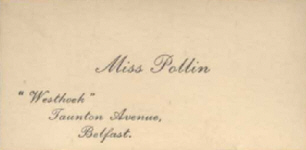 Miss Pollin
"Westhoek"
Taunton Avenue,
Belfast.